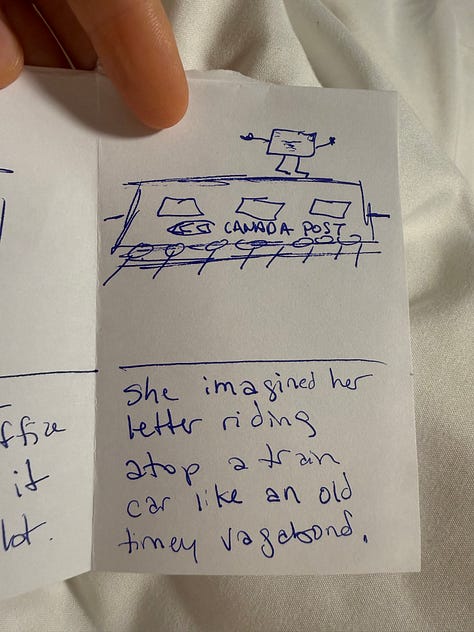 CANADA POST
ffice
it
lot.
She imagined her
letter riding
atop a train
car like an old
timey vagabond.